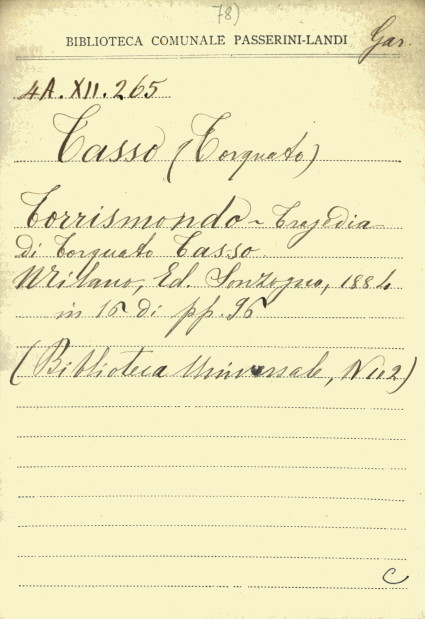 78)
BIBLIOTECA COMUNALE PASSERINI-LANDI Gar.
4A.XII.265
Tasso (Torquato)
Torrismondo - Tragedia
di Torquato Tasso.
Milano, Ed. Sonzogno, 1884
in 16 di pp. 96
(Biblioteca Universale, N 112)
C